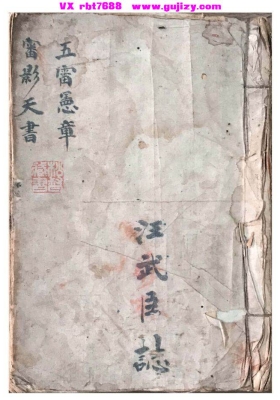 VX rbt7688 www.gujizy.com
五雷憲章
雷影天書
汪武臣誌